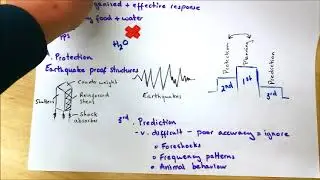 organised + effective response
food + water
H₂O
Protection
Earthquake proof structures
Concrete weight
Shutters
Reinforced steel
Shock absorber
Earthquakes
Protection
Planning
Prediction
2nd
1st
3rd
3rd. Prediction
- v. difficult - poor accuracy = ignore
Foreshocks
Frequency patterns
Animal behaviour